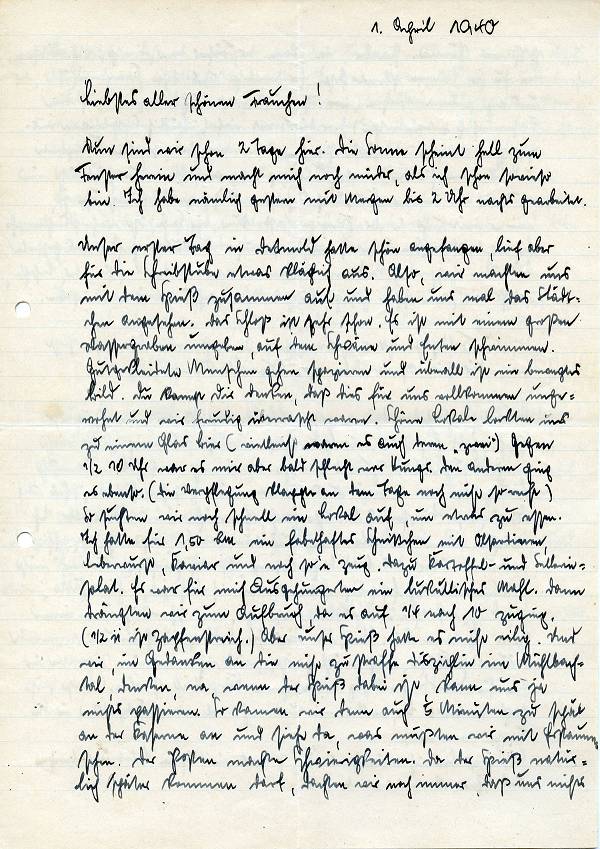 1. April 1940
Liebstes aller schönen Frauchen!
Nun sind wir schon 2 Tage hier. Die Sonne scheint hell zum
Fenster herein und macht mich noch müder, als ich schon sowieso
bin. Ich habe nämlich gestern mit Mergen bis 2 Uhr nachts gearbeitet.
Unser erster Tag in Detmold hatte schön angefangen, lief aber
für die Schreibstube etwas kläglich aus. Also, wir machten uns
mit dem Spieß zusammen auf und haben uns mal das Städt-
chen angesehen. Das Schloß ist sehr schön. Es ist mit einem großen
Wassergraben umgeben, auf dem Schwäne und Enten schwimmen.
Gutgekleidete Menschen gehen spazieren und überall ist ein bewegtes
Bild. Du kannst dir denken, daß dies für uns vollkommen unge-
wohnt und wir freudig überrascht waren. Schöne Lokale lockten uns
zu einem Glas Bier (vielleicht waren es auch deren "zwei") Gegen
1/2 10 Uhr war es mir aber bald schlecht vor Hunger. Den anderen ging
es ebenso. (Die Verpflegung klappte an dem Tage noch nicht so recht)
So suchten wir noch schnell ein Lokal auf, um etwas zu essen.
Ich hatte für 1,50 RM ein fabelhaftes Schnittchen mit Ölsardinen
Leberwurst, Kaviar und noch so'n Zeug. Dazu Kartoffel- und Sellerie-
salat. Es war für mich Ausgehungerten ein lukullisches Mahl. Dann
drängten wir zum Aufbruch, da es auf 1/4 nach 10 zuging.
(1/2 11 ist Zapfenstreich.) Aber unser Spieß hatte es nicht eilig. Und
wir, in Gedanken an die nicht zu straffe Disziplin im Mühlbach-
tal, dachten, na wenn der Spieß dabei ist, kann uns ja
nichts passieren. So kamen wir denn auch 5 Minuten zu spät
an der Kaserne an und siehe da, was mußten wir mit Erstaunen
sehen. Der Posten machte Schwierigkeiten. Da der Spieß natür-
lich später kommen darf, dachten wir noch immer, daß uns nichts